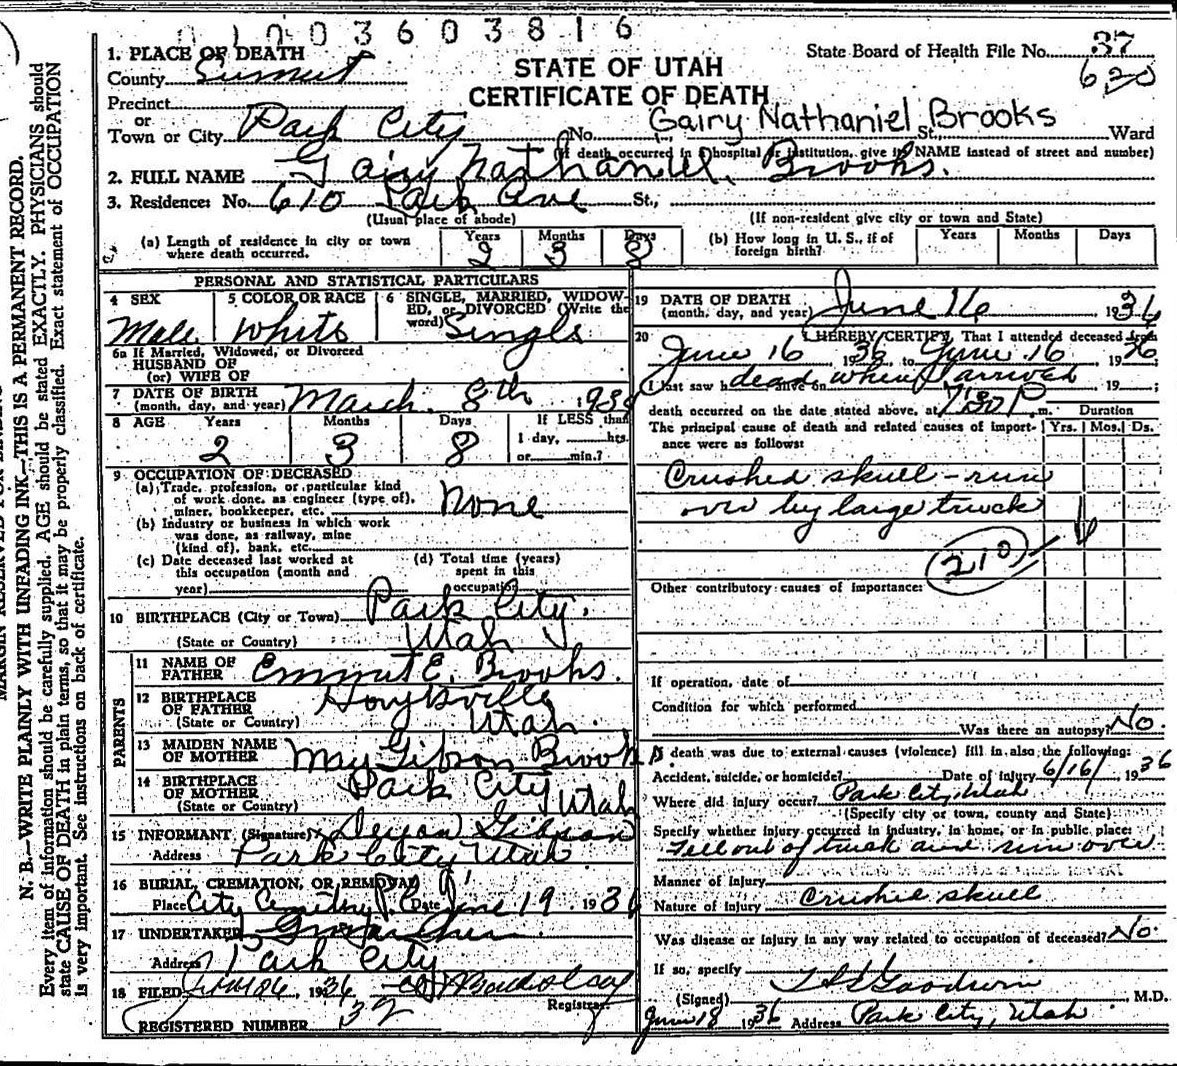 0 1 0 0 3 6 0 3 8 1 6
1. PLACE OF DEATH
County Summit
STATE OF UTAH
CERTIFICATE OF DEATH
State Board of Health File No. 37
620
Precinct
or
Town or City Park City No. St., Ward
Gairy Nathaniel Brooks
(If death occurred in hospital or institution, give its NAME instead of street and number)
2. FULL NAME Gairy Nathaniel Brooks.
3. Residence: No. 610 Park Ave St.,
(Usual place of abode) (If non-resident give city or town and State)
(a) Length of residence in city or town where death occurred. Years 2 Months 3 Days 8
(b) How long in U. S., if of foreign birth? Years Months Days
PERSONAL AND STATISTICAL PARTICULARS
4 SEX Male
5 COLOR OR RACE White
6 SINGLE, MARRIED, WIDOWED, or DIVORCED (Write the word) Single
6a If Married, Widowed, or Divorced
HUSBAND OF
(or) WIFE OF
7 DATE OF BIRTH
(month, day, and year) March 8th 1934
8 AGE Years 2 Months 3 Days 8 If LESS than 1 day, hrs. or min.?
9 OCCUPATION OF DECEASED
(a) Trade, profession, or particular kind of work done, as engineer (type of), miner, bookkeeper, etc. None
(b) Industry or business in which work was done, as railway, mine (kind of), bank, etc.
(c) Date deceased last worked at this occupation (month and year)
(d) Total time (years) spent in this occupation
10 BIRTHPLACE (City or Town) Park City.
(State or Country) Utah
PARENTS
11 NAME OF FATHER Emmut E. Brooks.
12 BIRTHPLACE OF FATHER Hoytsville
(State or Country) Utah.
13 MAIDEN NAME OF MOTHER May Gibson Brooks
14 BIRTHPLACE OF MOTHER Park City
(State or Country) Utah
15 INFORMANT (Signature) Gibson
Address Park City Utah
16 BURIAL, CREMATION, OR REMOVAL
Place City Cemetry P.C. Date June 19 1936
17 UNDERTAKER
Address Park City
18 FILED 1936
Registrar
REGISTERED NUMBER 32
19 DATE OF DEATH
(month, day, and year) June 16 1936
20 I HEREBY CERTIFY, That I attended deceased from
June 16 1936 to June 16 1936
I last saw h alive on dead when I arrived 19 ;
death occurred on the date stated above, at 7:30 P. m.
The principal cause of death and related causes of importance were as follows:
Duration
Yrs. Mos. Ds.
Crushed skull - run
over by large truck
210
Other contributory causes of importance:
If operation, date of
Condition for which performed
Was there an autopsy? No.
If death was due to external causes (violence) fill in also the following:
Accident, suicide, or homicide? Date of injury 6/16/ 1936
Where did injury occur? Park City, Utah
(Specify city or town, county and State)
Specify whether injury occurred in industry, in home, or in public place:
Fell out of truck and run over
Manner of injury
Nature of injury Crushed skull
Was disease or injury in any way related to occupation of deceased? No.
If so, specify
(Signed) Goodwin, M.D.
June 18 1936 Address Park City, Utah
MARGIN RESERVED FOR BINDING
N. B.—WRITE PLAINLY WITH UNFADING INK—THIS IS A PERMANENT RECORD.
Every item of information should be carefully supplied. AGE should be stated EXACTLY. PHYSICIANS should
state CAUSE OF DEATH in plain terms, so that it may be properly classified. Exact statement of OCCUPATION
is very important. See instructions on back of certificate.